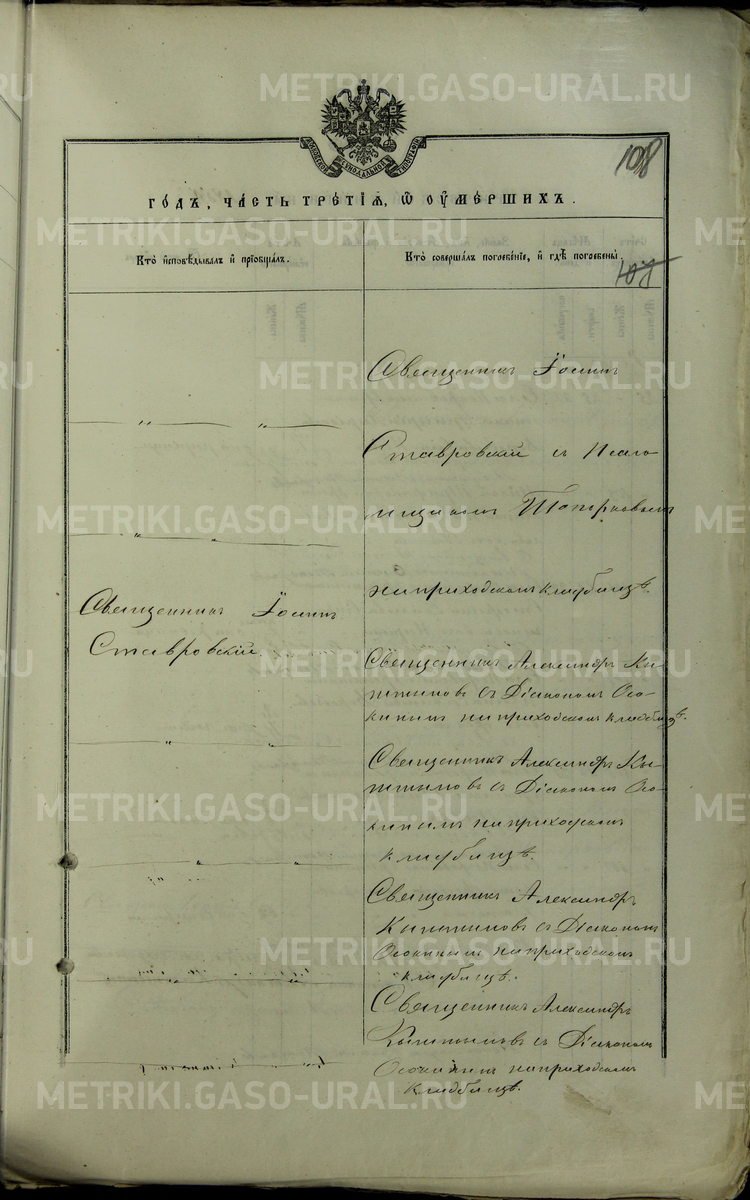 METRIKI.GASO-URAL.RU
108
го́дъ, ча́сть тре́тїѧ, ѡ҆ ᲂу҆ме́ршихъ.
Кто̀ и҆сповѣ́дывалъ и҆ прїѡбща́лъ.
Кто̀ соверша́лъ погребе́нїе, и҆ гдѣ̀ погребены̀.
Священникъ Іоаннъ
Ставровскій съ Псало-
мщикомъ Топорковымъ
на приходскомъ кладбищѣ.
Священникъ Іоаннъ
Ставровскій.
Священникъ Александръ
съ Діакономъ Осо-
кинымъ на приходскомъ кладбищѣ.
Священникъ Александръ
съ Діакономъ Осо-
кинымъ на приходскомъ
кладбищѣ.
Священникъ Александръ
съ Діакономъ
Осокинымъ на приходскомъ
кладбищѣ.
Священникъ Александръ
съ Діакономъ
Осокинымъ на приходскомъ
кладбищѣ.